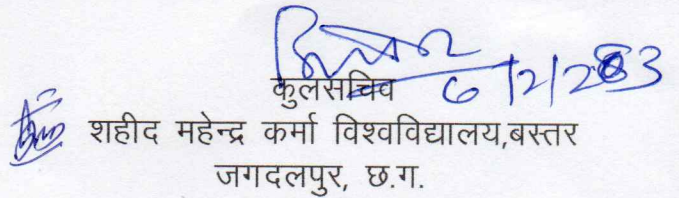 कुलसचिव
शहीद महेन्द्र कर्मा विश्वविद्यालय,बस्तर
जगदलपुर, छ.ग.